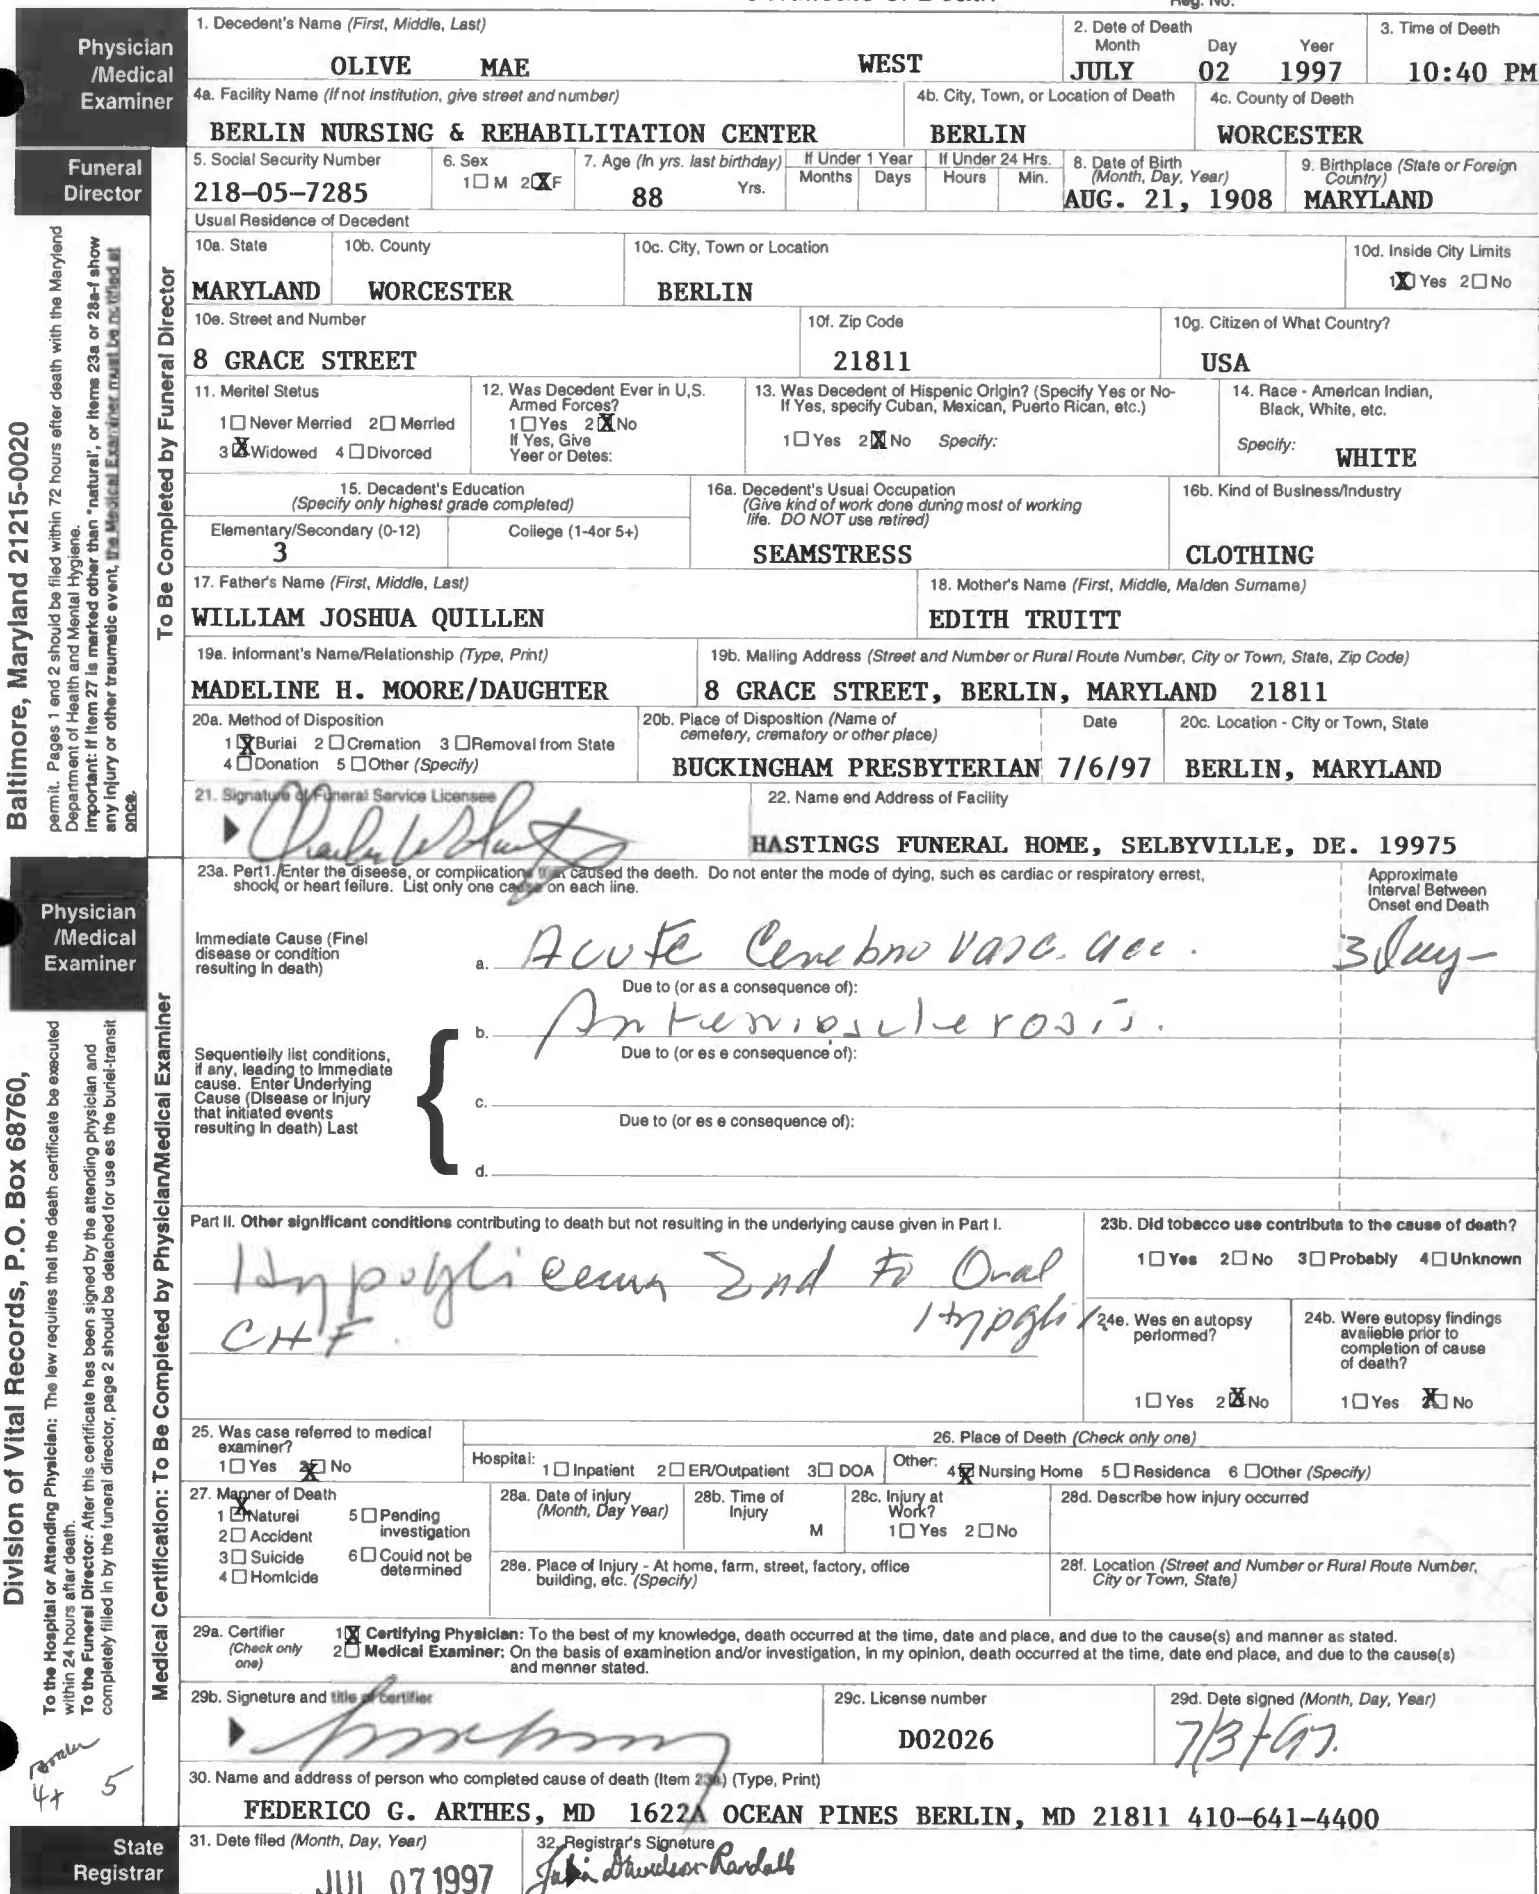 1. Decedent's Name (First, Middle, Last)
OLIVE MAE WEST
2. Date of Death
Month Day Year
JULY 02 1997
3. Time of Death
10:40 PM
Physician
/Medical
Examiner
4a. Facility Name (If not institution, give street and number)
BERLIN NURSING & REHABILITATION CENTER
4b. City, Town, or Location of Death
BERLIN
4c. County of Death
WORCESTER
Funeral
Director
5. Social Security Number
218-05-7285
6. Sex
1 ☐ M 2 ☒ F
7. Age (In yrs. last birthday)
88 Yrs.
If Under 1 Year
Months Days
If Under 24 Hrs.
Hours Min.
8. Date of Birth
(Month, Day, Year)
AUG. 21, 1908
9. Birthplace (State or Foreign
Country)
MARYLAND
Usual Residence of Decedent
10a. State
MARYLAND
10b. County
WORCESTER
10c. City, Town or Location
BERLIN
10d. Inside City Limits
1 ☒ Yes 2 ☐ No
10e. Street and Number
8 GRACE STREET
10f. Zip Code
21811
10g. Citizen of What Country?
USA
11. Marital Status
1 ☐ Never Married 2 ☐ Married
3 ☒ Widowed 4 ☐ Divorced
12. Was Decedent Ever in U,S.
Armed Forces?
1 ☐ Yes 2 ☒ No
If Yes, Give
Year or Dates:
13. Was Decedent of Hispanic Origin? (Specify Yes or No-
If Yes, specify Cuban, Mexican, Puerto Rican, etc.)
1 ☐ Yes 2 ☒ No Specify:
14. Race - American Indian,
Black, White, etc.
Specify: WHITE
15. Decadent's Education
(Specify only highest grade completed)
Elementary/Secondary (0-12) College (1-4or 5+)
3
16a. Decedent's Usual Occupation
(Give kind of work done during most of working
life. DO NOT use retired)
SEAMSTRESS
16b. Kind of Business/Industry
CLOTHING
17. Father's Name (First, Middle, Last)
WILLIAM JOSHUA QUILLEN
18. Mother's Name (First, Middle, Maiden Surname)
EDITH TRUITT
19a. Informant's Name/Relationship (Type, Print)
MADELINE H. MOORE/DAUGHTER
19b. Mailing Address (Street and Number or Rural Route Number, City or Town, State, Zip Code)
8 GRACE STREET, BERLIN, MARYLAND 21811
20a. Method of Disposition
1 ☒ Burial 2 ☐ Cremation 3 ☐ Removal from State
4 ☐ Donation 5 ☐ Other (Specify)
20b. Place of Disposition (Name of
cemetery, crematory or other place)
BUCKINGHAM PRESBYTERIAN
Date
7/6/97
20c. Location - City or Town, State
BERLIN, MARYLAND
21. Signature of Funeral Service Licensee
22. Name and Address of Facility
HASTINGS FUNERAL HOME, SELBYVILLE, DE. 19975
To Be Completed by Funeral Director
Baltimore, Maryland 21215-0020
permit. Pages 1 and 2 should be filed within 72 hours after death with the Maryland
Department of Health and Mental Hygiene.
Important: If item 27 is marked other than "natural", or items 23a or 28a-f show
any injury or other traumatic event, the Medical Examiner must be notified at
once.
Physician
/Medical
Examiner
23a. Part1. Enter the disease, or complications that caused the death. Do not enter the mode of dying, such as cardiac or respiratory arrest,
shock, or heart failure. List only one cause on each line.
Approximate
Interval Between
Onset and Death
Immediate Cause (Final
disease or condition
resulting in death)
a. Acute Cerebro Vasc. acc. 3 day
Due to (or as a consequence of):
b. Arteriosclerosis.
Due to (or as a consequence of):
Sequentially list conditions,
if any, leading to immediate
cause. Enter Underlying
Cause (Disease or Injury
that initiated events
resulting in death) Last
c.
Due to (or as a consequence of):
d.
Part II. Other significant conditions contributing to death but not resulting in the underlying cause given in Part I.
Hypoglicemia 2nd to Oral
Hypogli
CHF.
23b. Did tobacco use contribute to the cause of death?
1 ☐ Yes 2 ☐ No 3 ☐ Probably 4 ☐ Unknown
24a. Was an autopsy
performed?
1 ☐ Yes 2 ☒ No
24b. Were autopsy findings
available prior to
completion of cause
of death?
1 ☐ Yes 2 ☒ No
25. Was case referred to medical
examiner?
1 ☐ Yes 2 ☒ No
26. Place of Death (Check only one)
Hospital: 1 ☐ Inpatient 2 ☐ ER/Outpatient 3 ☐ DOA
Other: 4 ☒ Nursing Home 5 ☐ Residence 6 ☐ Other (Specify)
27. Manner of Death
1 ☒ Natural
2 ☐ Accident
3 ☐ Suicide
4 ☐ Homicide
5 ☐ Pending
investigation
6 ☐ Could not be
determined
28a. Date of injury
(Month, Day Year)
28b. Time of
Injury
M
28c. Injury at
Work?
1 ☐ Yes 2 ☐ No
28d. Describe how injury occurred
28e. Place of Injury - At home, farm, street, factory, office
building, etc. (Specify)
28f. Location (Street and Number or Rural Route Number,
City or Town, State)
29a. Certifier
(Check only
one)
1 ☒ Certifying Physician: To the best of my knowledge, death occurred at the time, date and place, and due to the cause(s) and manner as stated.
2 ☐ Medical Examiner: On the basis of examination and/or investigation, in my opinion, death occurred at the time, date and place, and due to the cause(s)
and manner stated.
29b. Signature and title of certifier
29c. License number
D02026
29d. Date signed (Month, Day, Year)
7/3/97.
30. Name and address of person who completed cause of death (Item 23a) (Type, Print)
FEDERICO G. ARTHES, MD 1622A OCEAN PINES BERLIN, MD 21811 410-641-4400
Medical Certification: To Be Completed by Physician/Medical Examiner
Division of Vital Records, P.O. Box 68760,
To the Hospital or Attending Physician: The law requires that the death certificate be executed
within 24 hours after death.
To the Funeral Director: After this certificate has been signed by the attending physician and
completely filled in by the funeral director, page 2 should be detached for use as the burial-transit
4+ 5
State
Registrar
31. Date filed (Month, Day, Year)
JUL 07 1997
32. Registrar's Signature